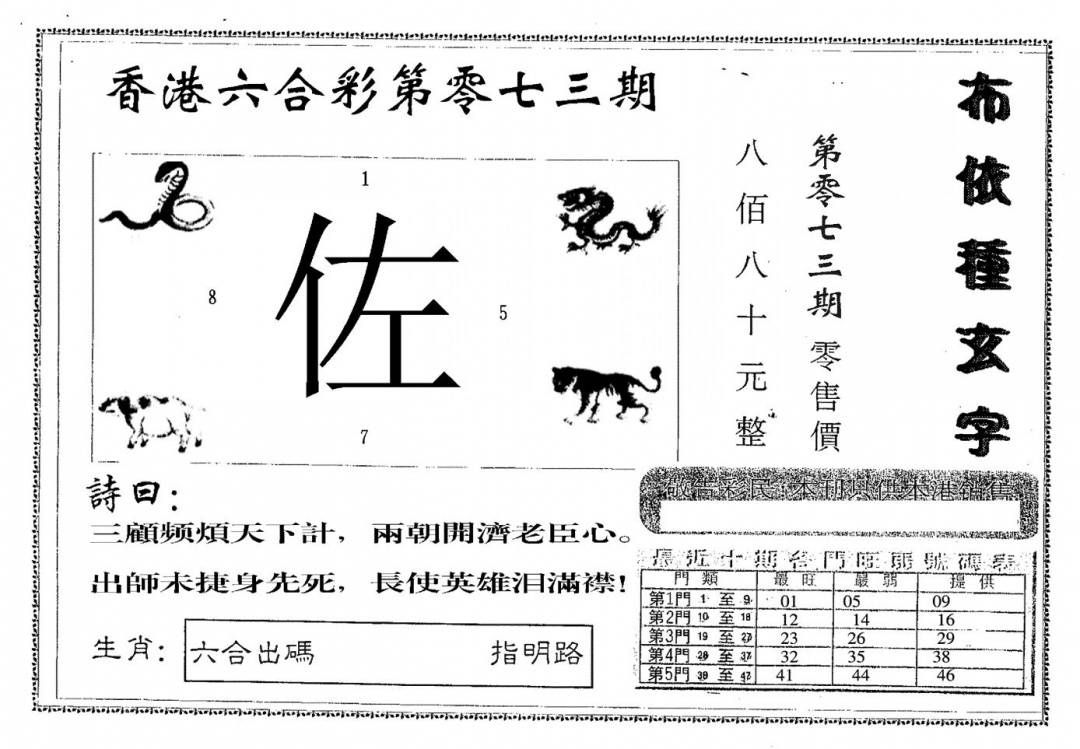 香港六合彩第零七三期
布依種玄字
第零七三期零售價
八佰八十元整
1
8
佐
5
7
詩曰：
三顧频煩天下計，兩朝開濟老臣心。
出師未捷身先死，長使英雄泪滿襟！
生肖：六合出碼 指明路
敬告彩民：本刊只供本港銷售
最近十期各門旺弱號碼表
門類 最旺 最弱 提供
第1門 1至9 01 05 09
第2門 10至18 12 14 16
第3門 19至27 23 26 29
第4門 28至37 32 35 38
第5門 38至47 41 44 46